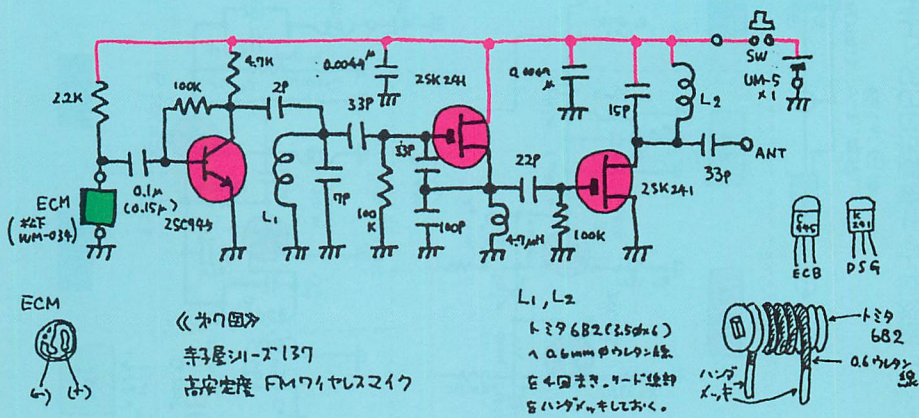 SW
UM-5
×1
2.2K
100K
4.7K
2P
0.0047μ
33P
2SK241
0.0047
μ
15P
L2
33P
ANT
ECM
(松下
WM-034)
0.1μ
(0.15μ)
2SC945
L1
7P
100
K
33P
100P
22P
4.7μH
100K
2SK241
C
945
ECB
K
241
DSG
ECM
(-) (+)
《第7図》
寺子屋シリーズ137
高安定度 FMワイヤレスマイク
L1, L2
トミタ6B2(3.5φ×6)
へ0.6mmφウレタン線
を4回まき。リード線部
をハンダメッキしておく。
トミタ
6B2
0.6ウレタン
線
ハンダ
メッキ